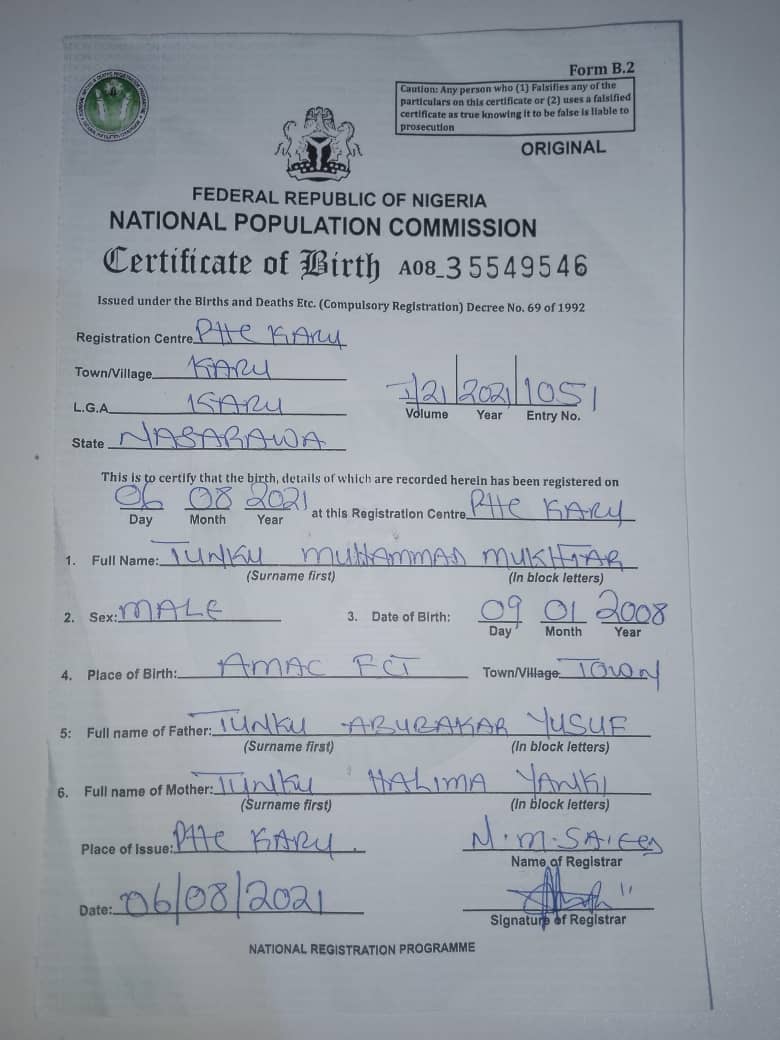 Form B.2
Caution: Any person who (1) Falsifies any of the
particulars on this certificate or (2) uses a falsified
certificate as true knowing it to be false is liable to
prosecution
ORIGINAL
FEDERAL REPUBLIC OF NIGERIA
NATIONAL POPULATION COMMISSION
Certificate of Birth A08_35549546
Issued under the Births and Deaths Etc. (Compulsory Registration) Decree No. 69 of 1992
Registration Centre PHC KARU
Town/Village KARU
L.G.A KARU
State NASARAWA
I/21 2021 1051
Volume Year Entry No.
This is to certify that the birth, details of which are recorded herein has been registered on
06 08 2021 at this Registration Centre PHC KARU
Day Month Year
1. Full Name: TUNKU MUHAMMAD MUKHTAR
(Surname first) (In block letters)
2. Sex: MALE 3. Date of Birth: 09 01 2008
Day Month Year
4. Place of Birth: AMAC FCT Town/Village TOWN
5: Full name of Father: TUNKU ABUBAKAR YUSUF
(Surname first) (In block letters)
6. Full name of Mother: TUNKU HALIMA YANKI
(Surname first) (In block letters)
Place of Issue: PHC KARU. N.M.
Name of Registrar
Date: 06/08/2021
Signature of Registrar
NATIONAL REGISTRATION PROGRAMME